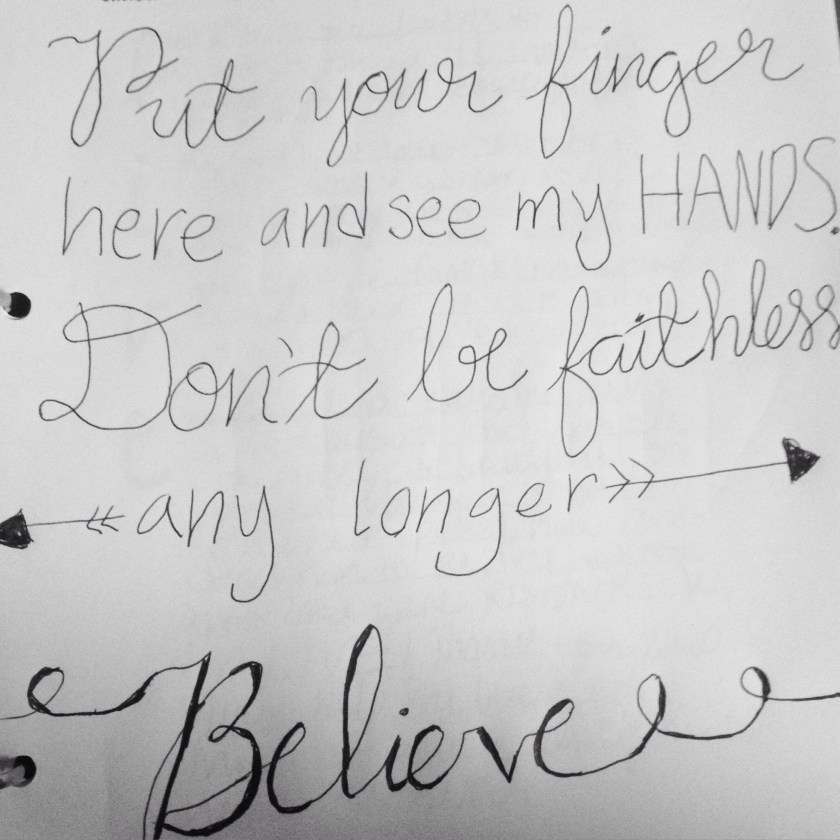 Put your finger
here and see my HANDS.
Don't be faithless
any longer
Believe